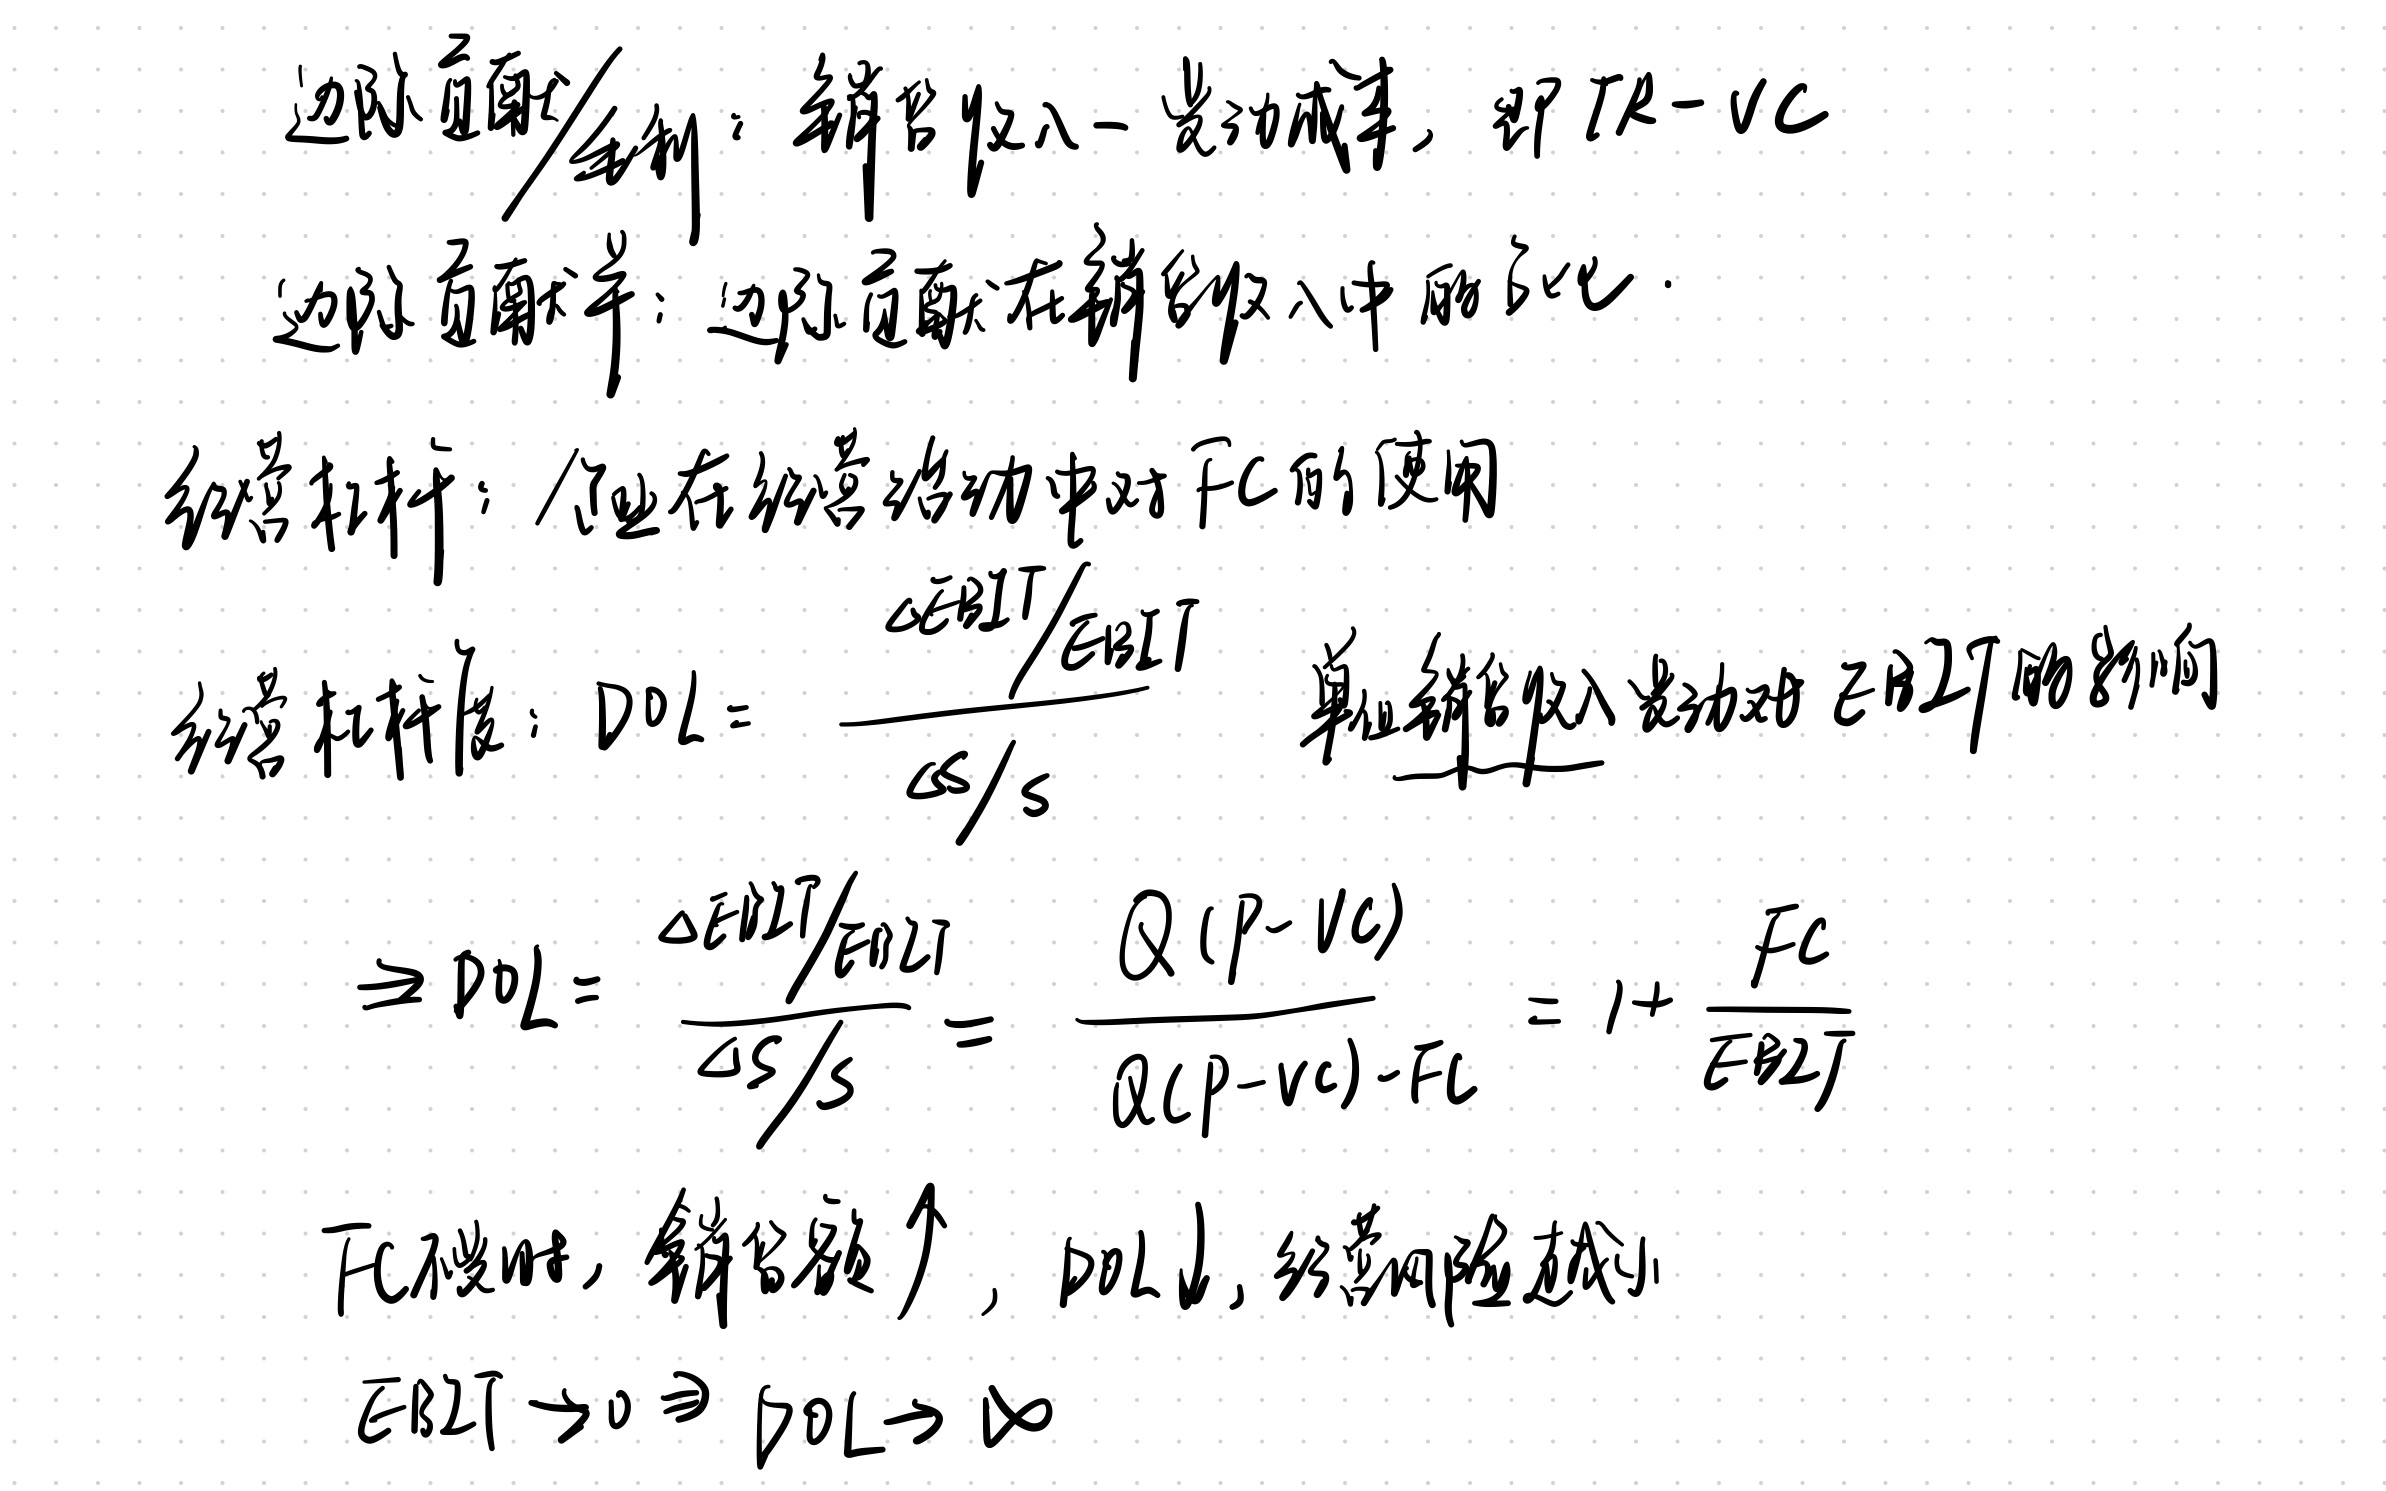 边际贡献/毛利：销售收入－变动成本，即TR－VC
边际贡献率：边际贡献在销售收入中的占比．
经营杠杆：企业在经营活动中对FC的使用
经营杠杆度：DOL = (△EBIT/EBIT)/(△S/S) 单位销售收入变动对EBIT的影响
⇒ DOL = (△EBIT/EBIT)/(△S/S) = Q(P－VC)/(Q(P－VC)－FC) = 1+ FC/EBIT
FC不变时，销售额↑，DOL↓，经营风险越小
EBIT→0 ⇒ DOL→∞